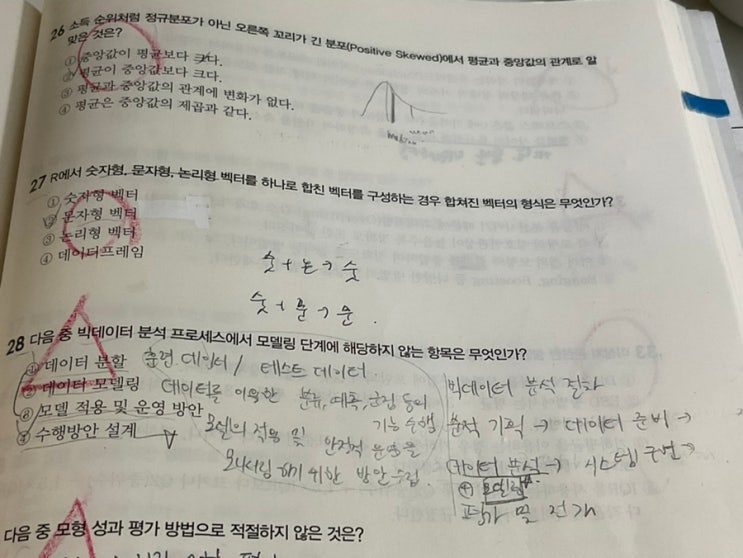 26 소득 순위처럼 정규분포가 아닌 오른쪽 꼬리가 긴 분포(Positive Skewed)에서 평균과 중앙값의 관계로 알
맞은 것은?
① 중앙값이 평균보다 크다.
② 평균이 중앙값보다 크다.
③ 평균과 중앙값의 관계에 변화가 없다.
④ 평균은 중앙값의 제곱과 같다.
27 R에서 숫자형, 문자형, 논리형 벡터를 하나로 합친 벡터를 구성하는 경우 합쳐진 벡터의 형식은 무엇인가?
① 숫자형 벡터
② 문자형 벡터
③ 논리형 벡터
④ 데이터프레임
숫 + 논 → 숫
숫 + 문 → 문.
28 다음 중 빅데이터 분석 프로세스에서 모델링 단계에 해당하지 않는 항목은 무엇인가?
① 데이터 분할 훈련 데이터 / 테스트 데이터
② 데이터 모델링 데이터를 이용한 분류, 예측, 군집 등의
기능 수행
③ 모델 적용 및 운영 방안
모델의 적용 및 안정적 운영을
④ 수행방안 설계
모니터링하기 위한 방안 수립.
빅데이터 분석 절차
분석 기획 → 데이터 준비 →
데이터 분석 → 시스템 구현 →
모델링
평가 및 전개
다음 중 모형 성과 평가 방법으로 적절하지 않은 것은?